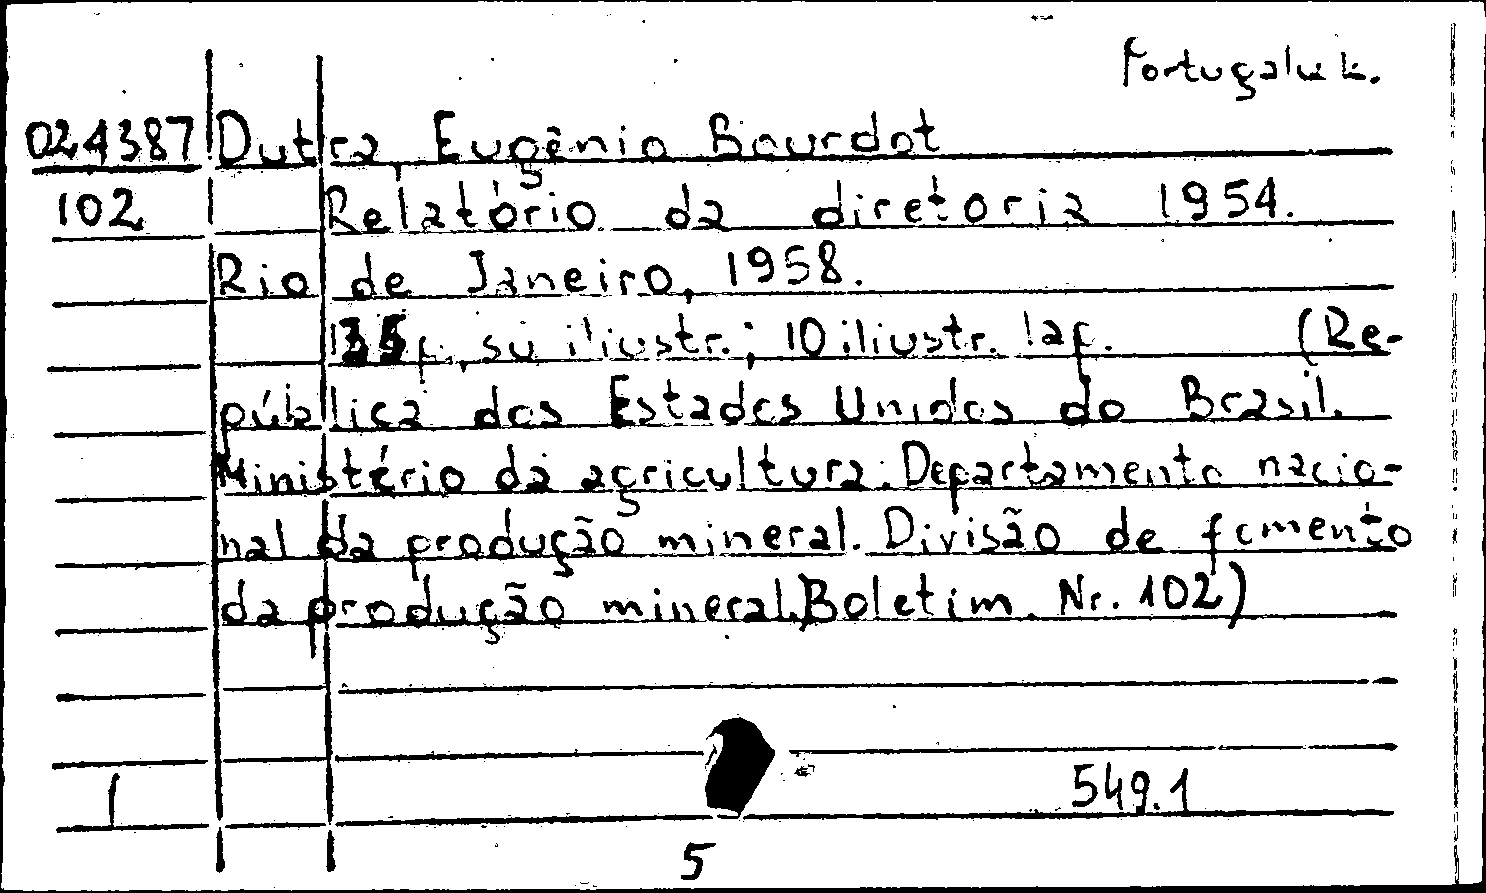 Portugalų k.
024387 Dutra, Eugênio Bourdot
102 Relatório da diretoria 1954.
Rio de Janeiro, 1958.
135 p., su iliustr.; 10 iliustr. lap. (Re-
pública dos Estados Unidos do Brasil.
Ministério da agricultura. Departamento nacio-
nal da produção mineral. Divisão de fomento
da produção mineral. Boletim. Nr. 102)
1 549.1
5